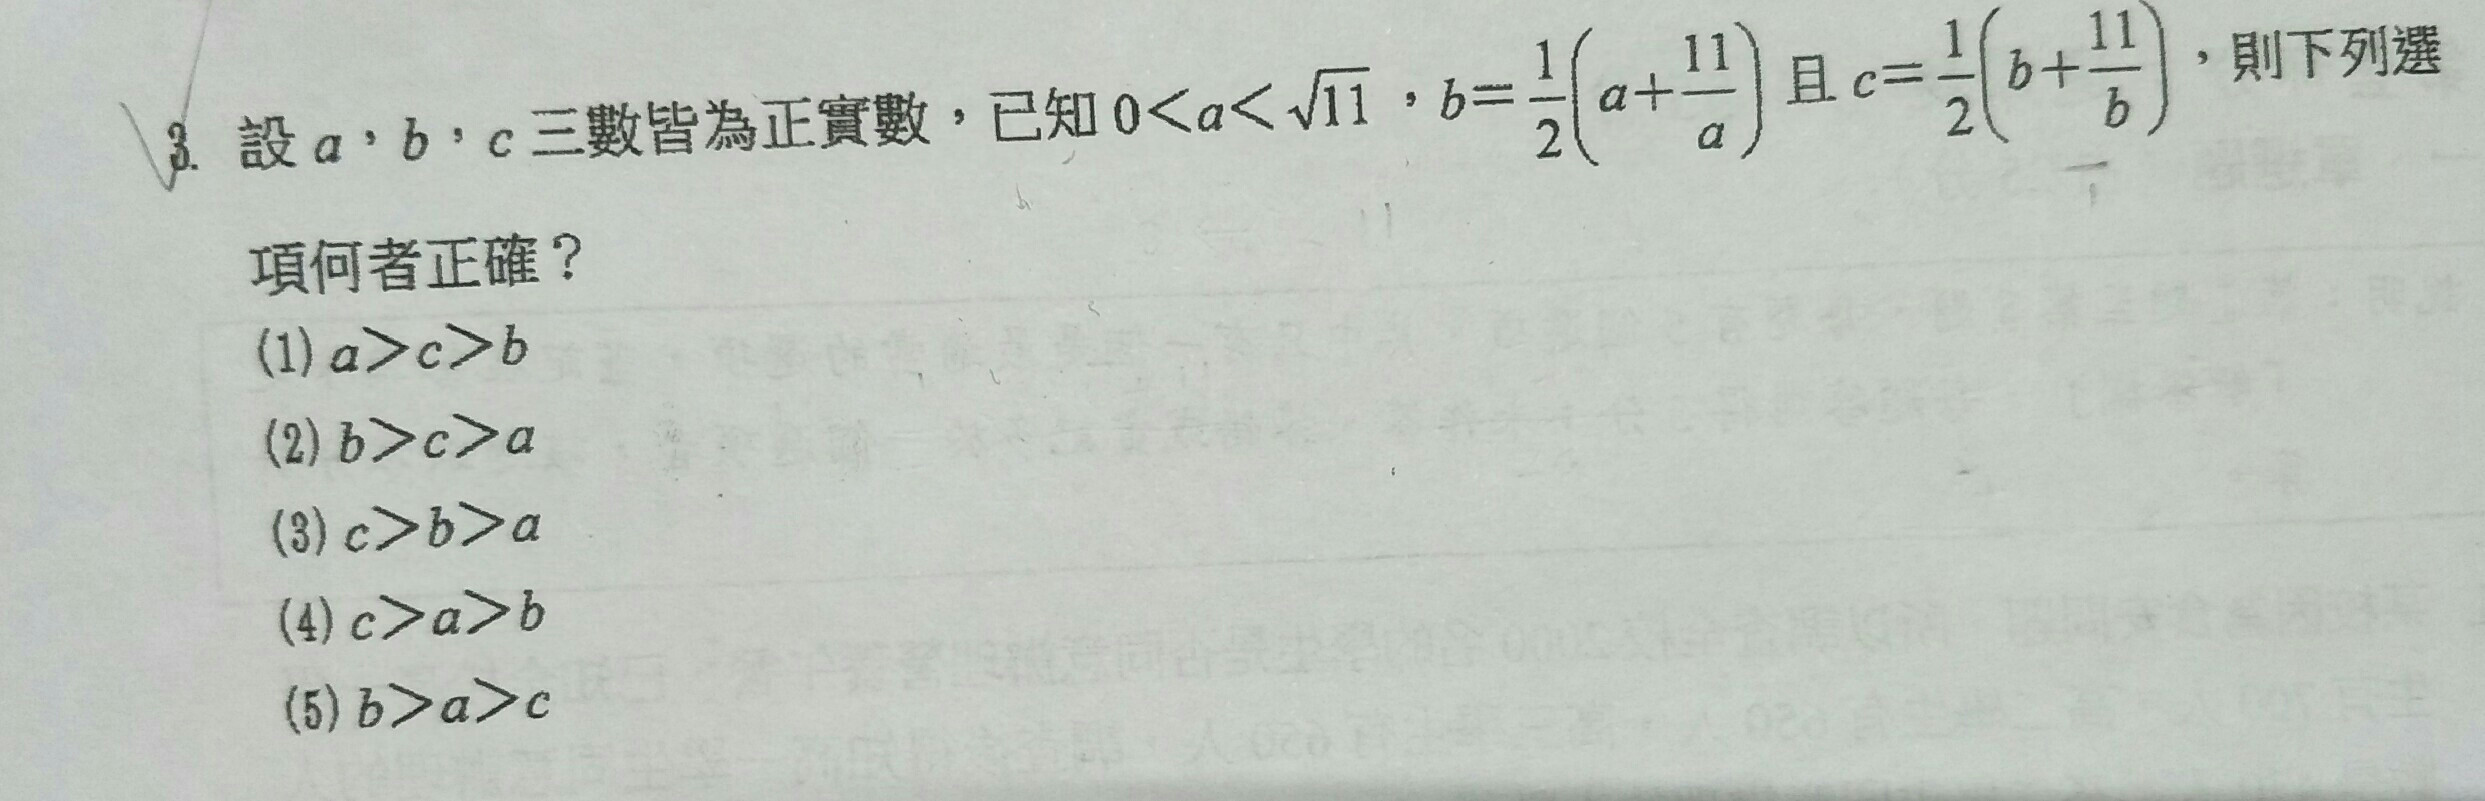 3. 設 a，b，c 三數皆為正實數，已知 0<a<√11，b=1/2(a+11/a) 且 c=1/2(b+11/b)，則下列選
項何者正確？
(1) a>c>b
(2) b>c>a
(3) c>b>a
(4) c>a>b
(5) b>a>c